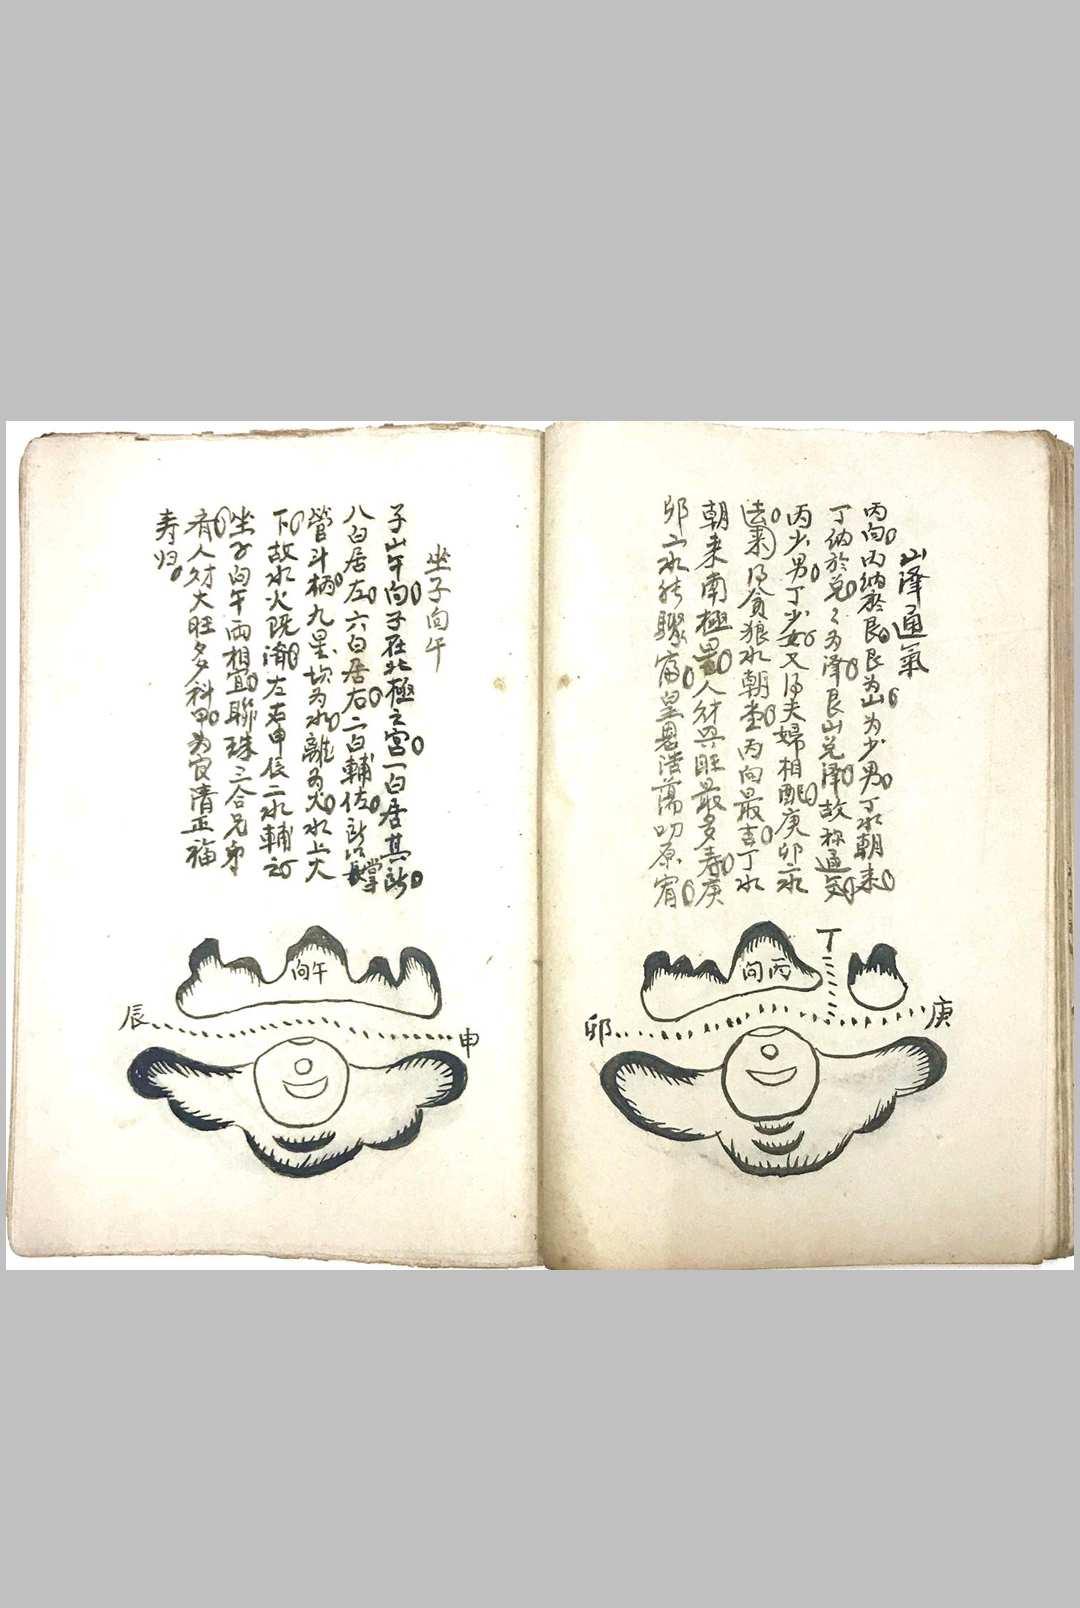 山泽通氣
丙向丙納於艮艮為山为少男丁水朝来
丁纳於兑々为泽艮山兑泽故称通気
丙少男丁少女又得夫婦相配庚卯二水
法氣得貪狼水朝堂丙向最吉丁水
朝来南極星人财兴旺最多寿庚
卯二水能聚富皇恩浩蕩叨原宥
丙向
丁
庚
卯
坐子向午
子山午向子在北極之宮一白居其所
八白居左六白居右二白輔佐所以長掌
管斗柄九星坎为水離为火水上火
下故水火既濟左右申辰二水輔
坐子向午両相宜聯珠三合兄弟
有人财大旺多科甲为官清正福
寿归
午向
辰
申